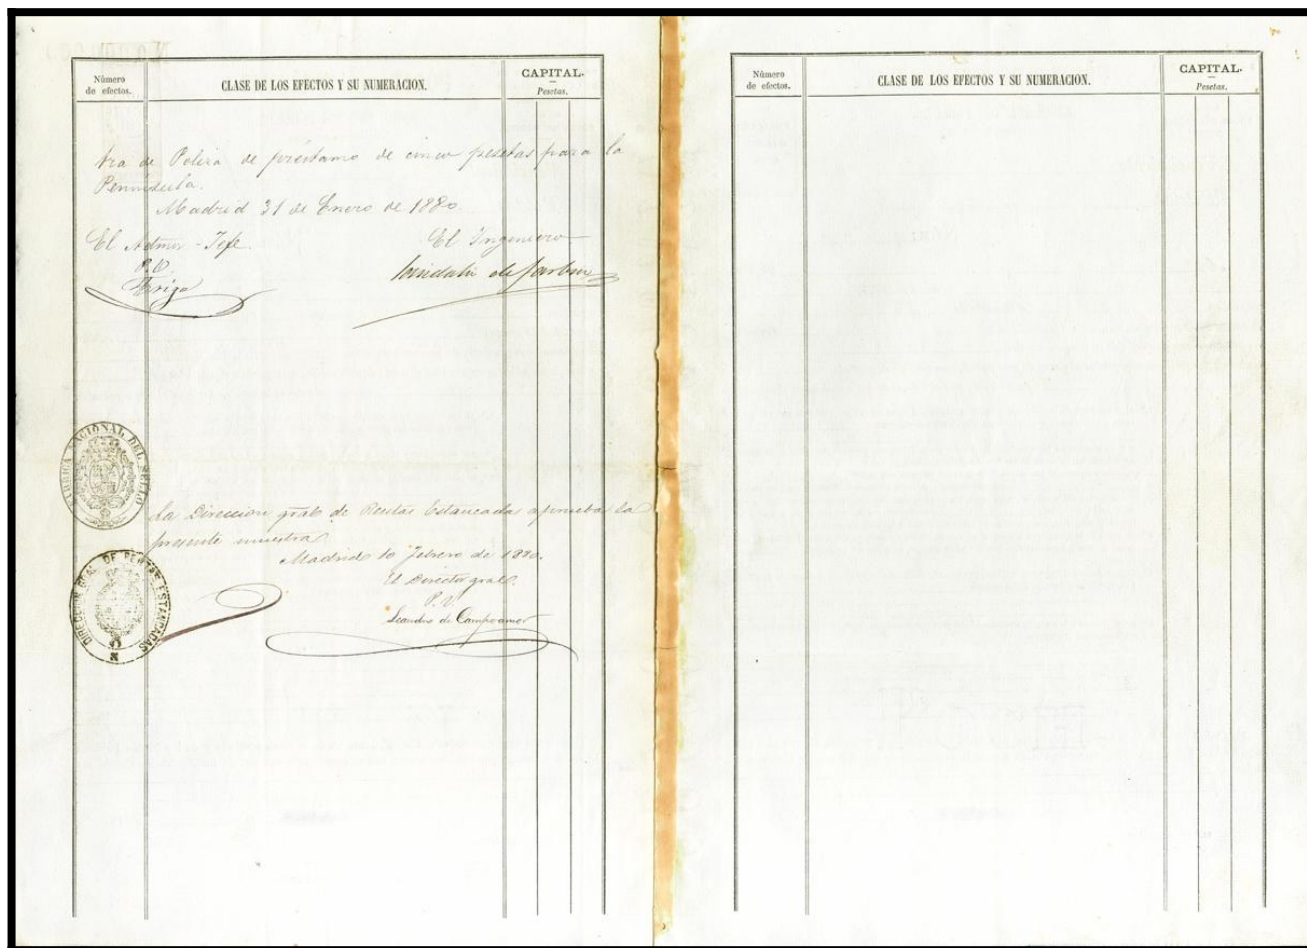 Número
de efectos.
CLASE DE LOS EFECTOS Y SU NUMERACION.
CAPITAL.
Pesetas.
tra de Poliza de préstamo de cinco pesetas para la
Peninsula.
Madrid 31 de Enero de 1880.
El Admor - Jefe.
El Ingeniero
P.O.
FABRICA NACIONAL DEL SELLO
La Direccion gral de Rentas Estancadas aprueba la
presente muestra
Madrid 10 Febrero de 1880.
El Director gral.
Leandro de Campoamor
DIRECCION GRAL DE RENTAS ESTANCADAS
Número
de efectos.
CLASE DE LOS EFECTOS Y SU NUMERACION.
CAPITAL.
Pesetas.